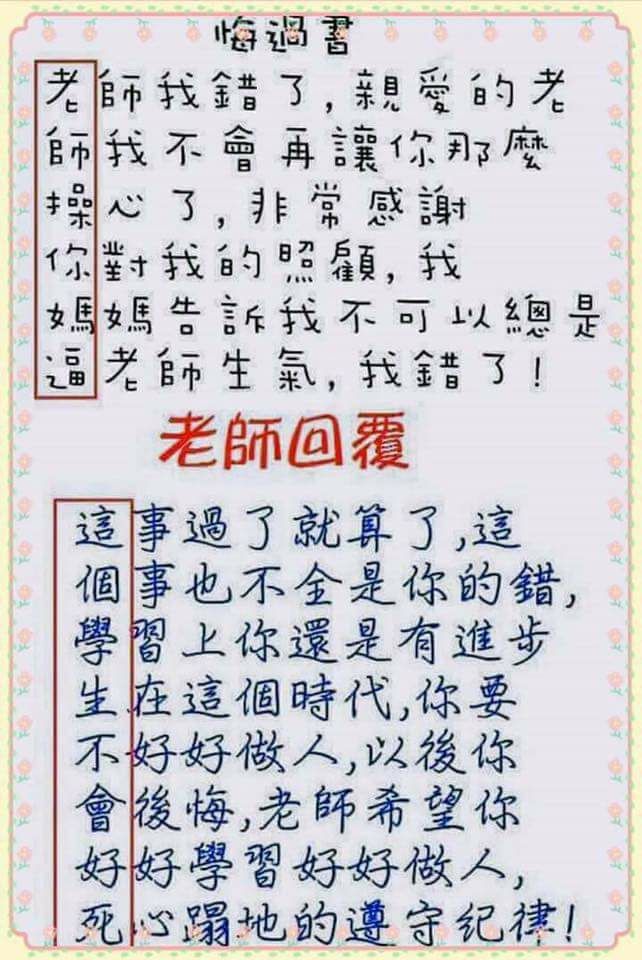 悔過書
老師我錯了,親愛的老
師我不會再讓你那麼
操心了,非常感謝
你對我的照顧,我
媽媽告訴我不可以總是
逼老師生氣,我錯了!
老師回覆
這事過了就算了,這
個事也不全是你的錯,
學習上你還是有進步
生在這個時代,你要
不好好做人,以後你
會後悔,老師希望你
好好學習好好做人,
死心蹋地的遵守紀律!